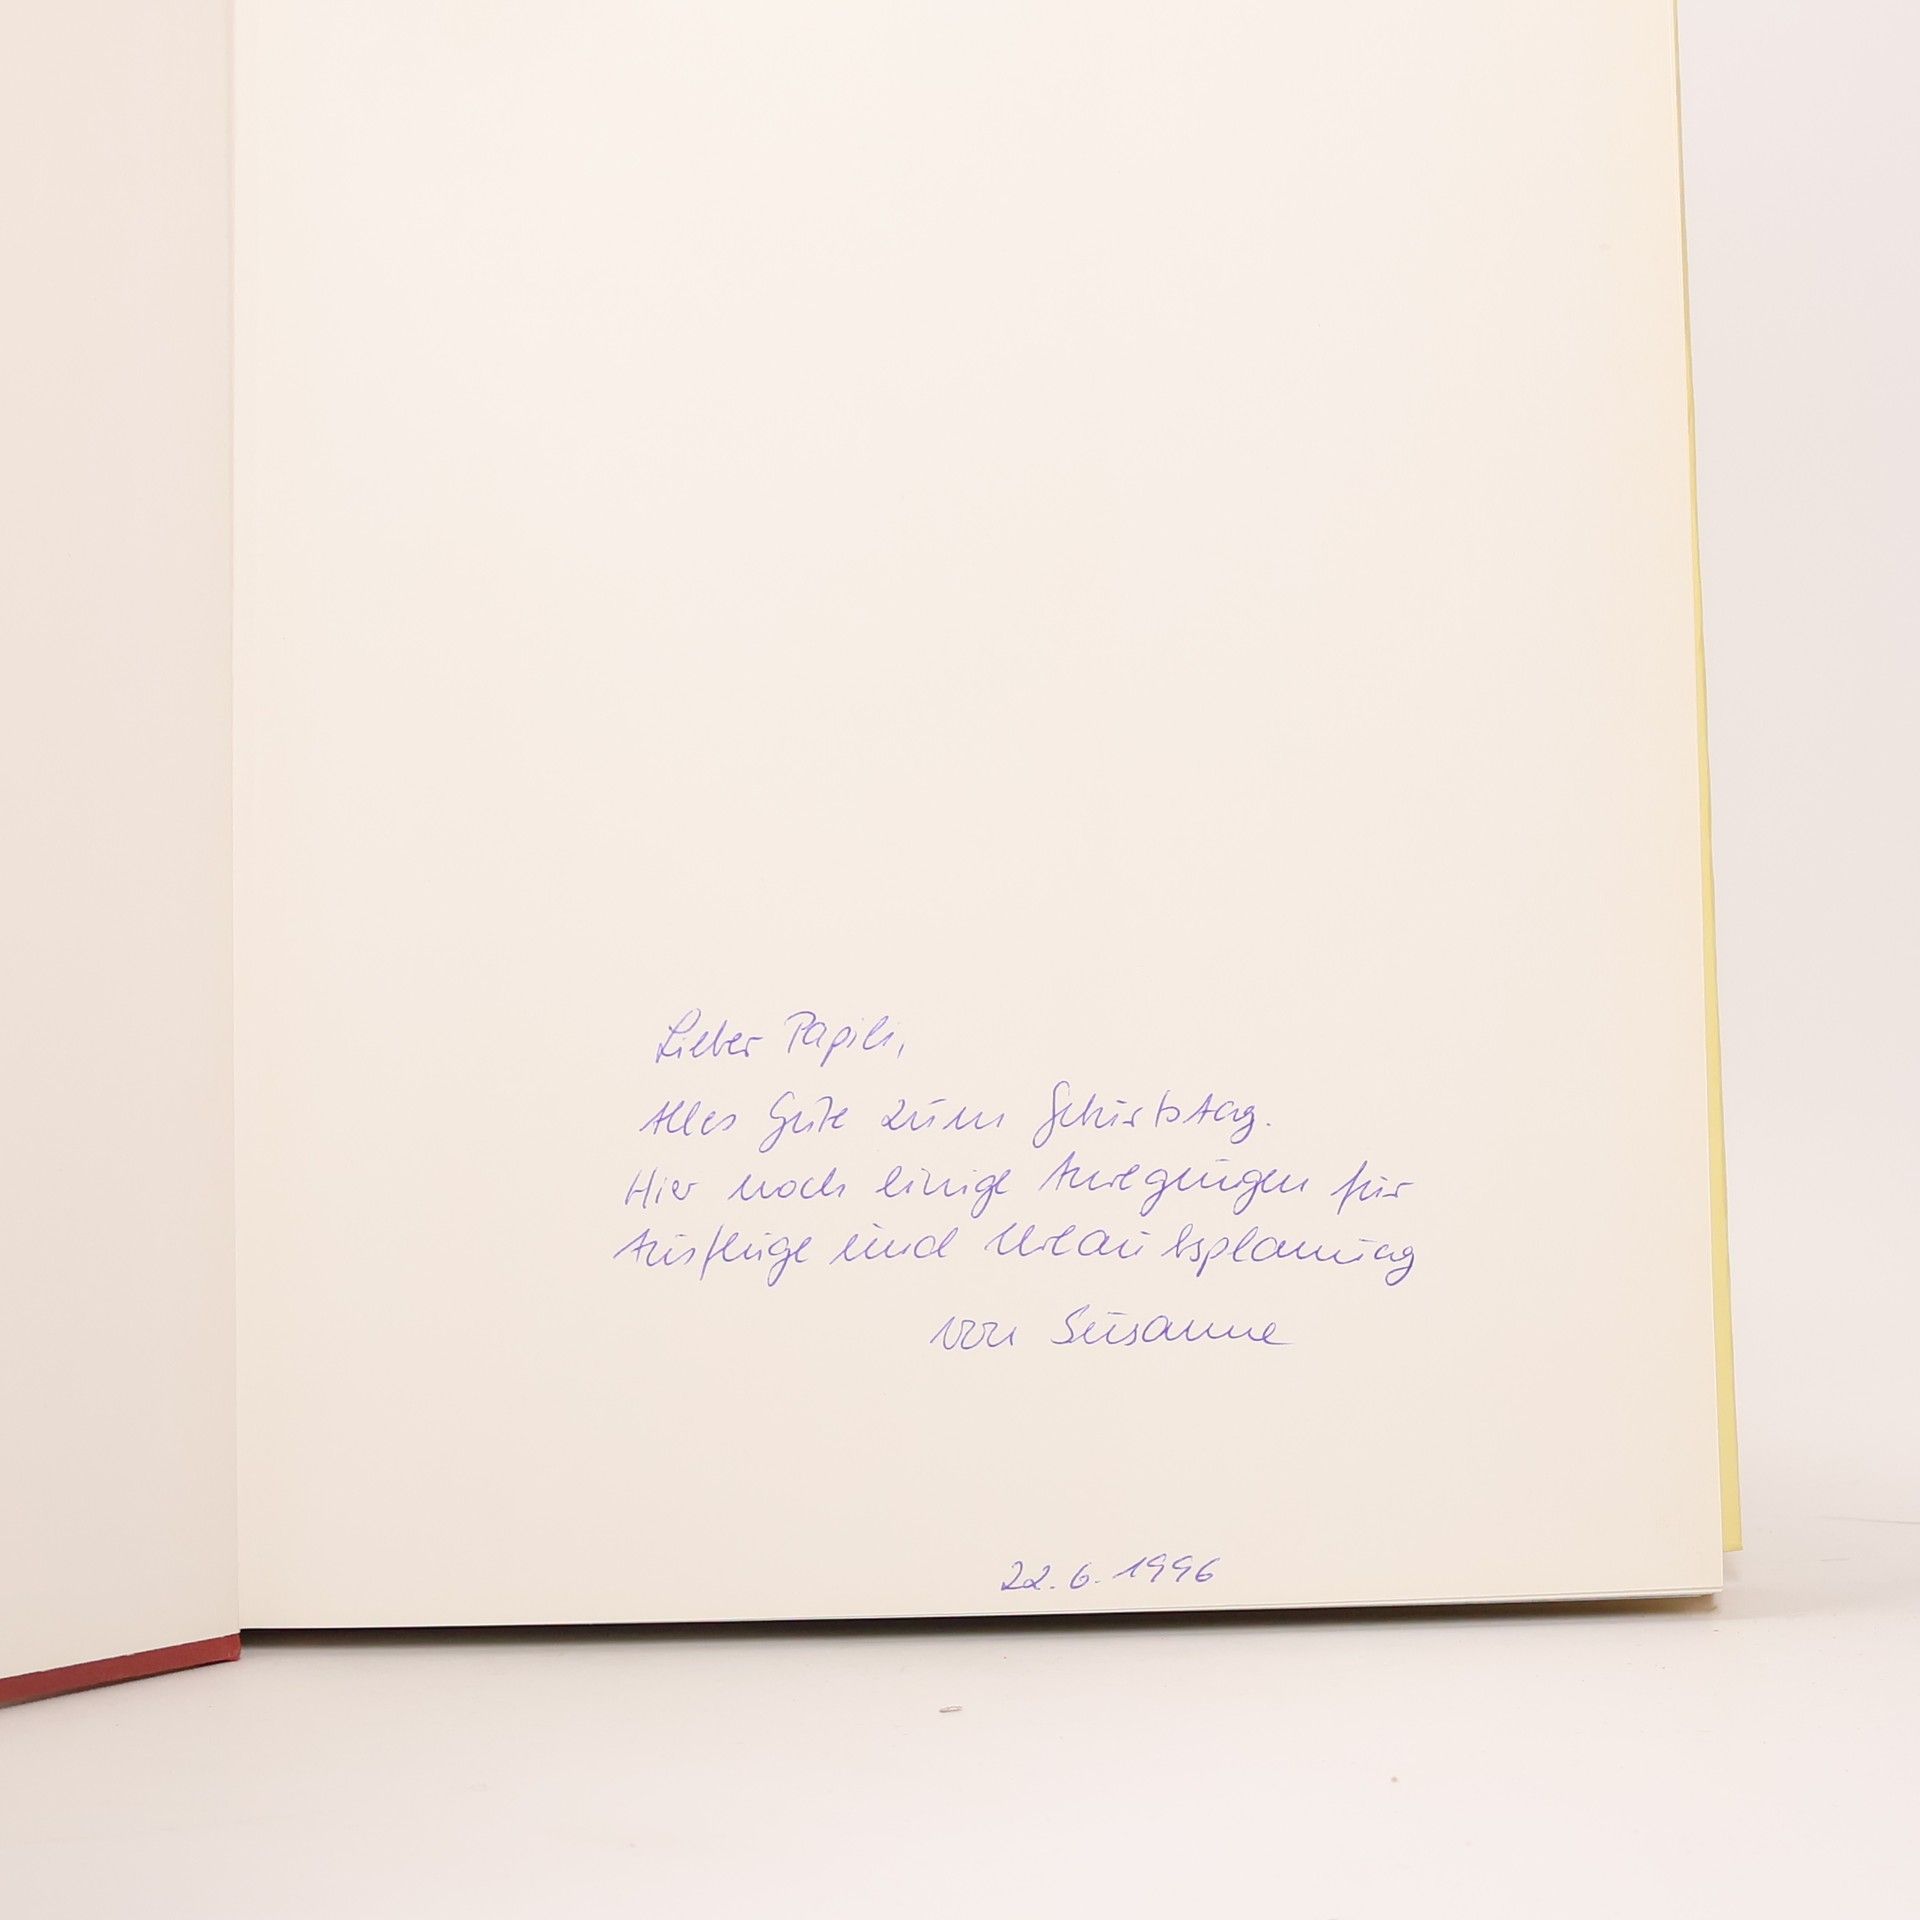 Lieber Papili,
Alles Gute zum Geburtstag.
Hier noch einige Anregungen für
Ausflüge und Urlaubsplanung
von Susanne
22.6.1996